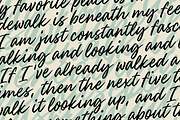 my favorite peace is
ewalk is beneath my fee
I am just constantly fasc
alking and looking and
If I've already walked a
imes, then the next five t
walk it looking up, and I
something about t